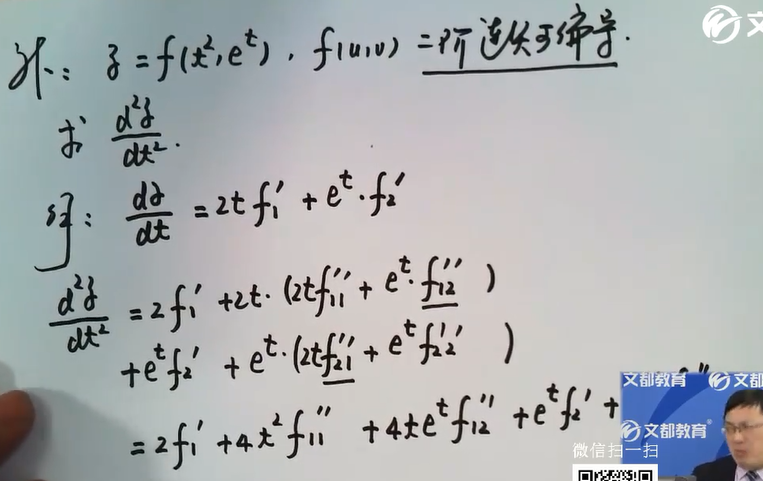 例: z = f(t², eᵗ), f(u,v) 二阶连续可偏导.
求 d²z/dt².
解: dz/dt = 2t f₁′ + eᵗ·f₂′
d²z/dt² = 2f₁′ + 2t·(2t f₁₁″ + eᵗ·f₁₂″)
+ eᵗ f₂′ + eᵗ·(2t f₂₁″ + eᵗ f₂₂″)
= 2f₁′ + 4t² f₁₁″ + 4t eᵗ f₁₂″ + eᵗ f₂′ +
文
文都教育 文
文都教育
微信扫一扫